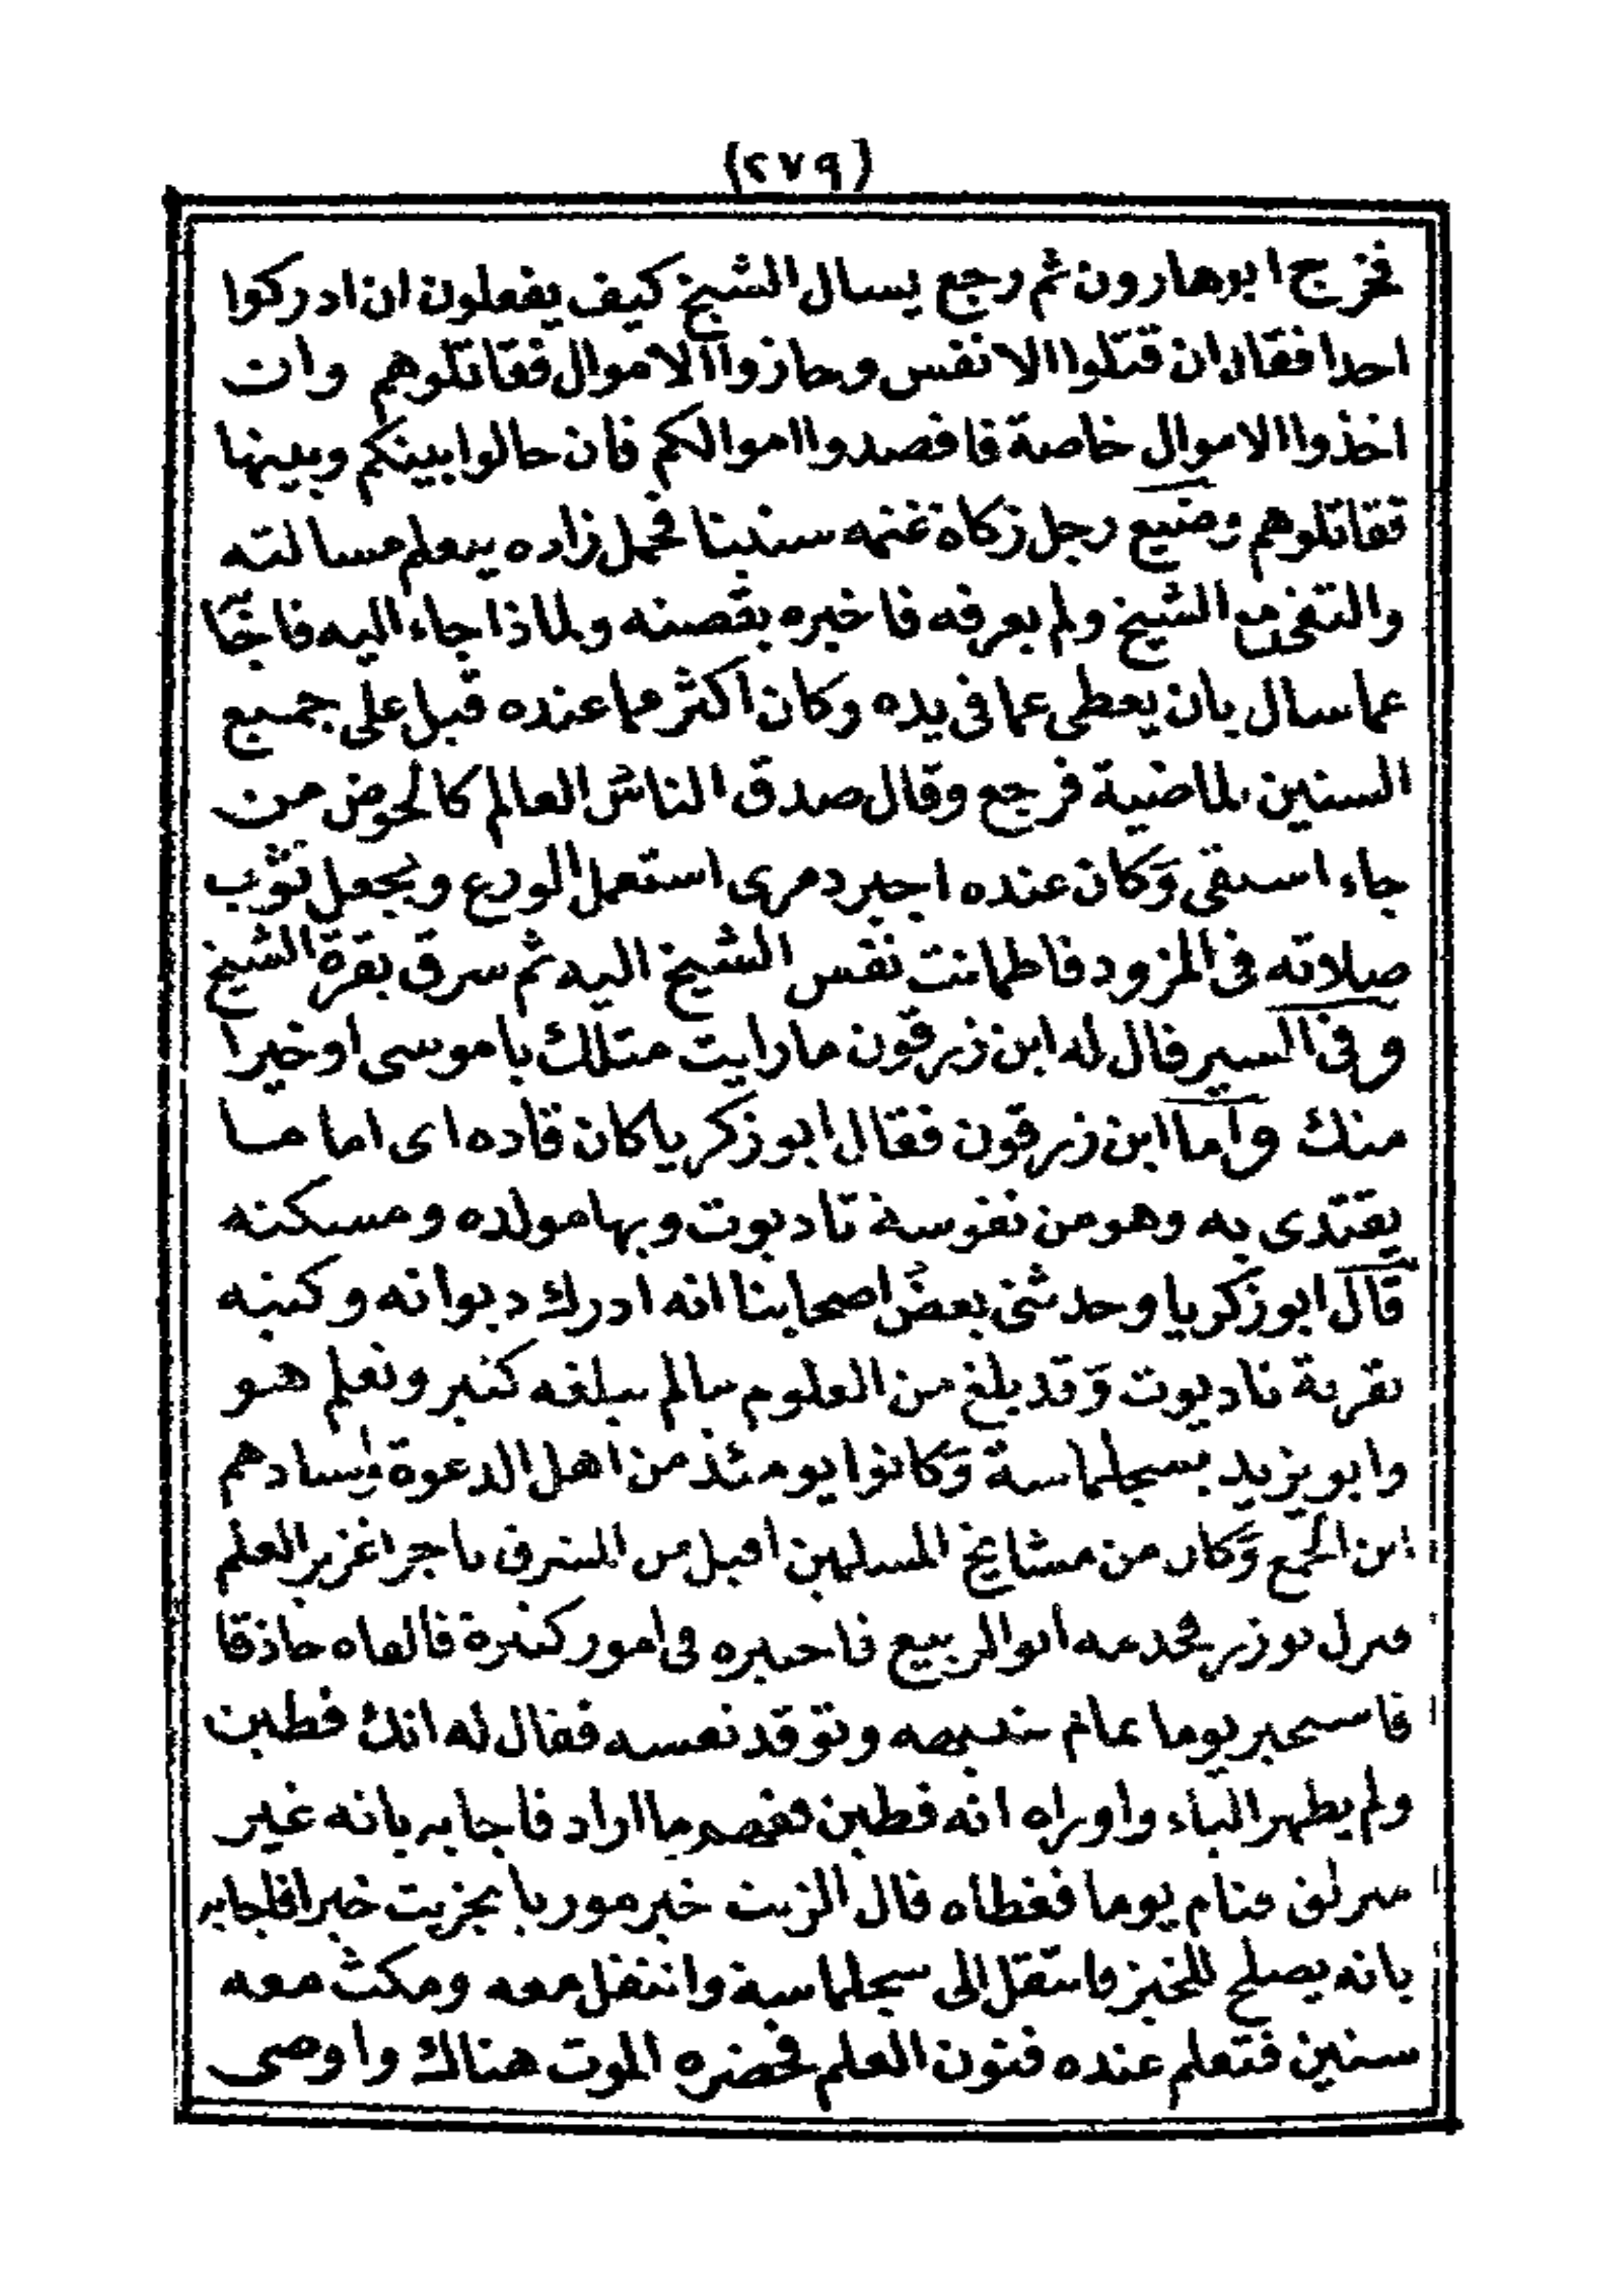 (٢٧٩)
فخرج ابوهارون ثم رجع يسال الشيخ كيف يفعلون ان ادركوا
احدا فقال ان قتلوا الانفس وحازوا الاموال فقاتلوهم وان
اخذوا الاموال خاصة فاقصدوا اموالكم فان حالوا بينكم وبينها
فقاتلوهم وضيع رجل زكاة غنمه سنينا فحمل زاده يتعلم مسالته
والتقى الشيخ ولم يعرفه فاخبره بقصته ولماذا جاء اليه فاجا
عما سال بان يعطى عما فى يده وكان اكثر مما عنده قبل على جميع
السنين الماضية فرجع وقال صدق الناس العالم كالحوض من
جاء استقى وكان عنده اجير دمرى استعمل الورع ويجعل ثوب
صلاته فى المزود فاطمانت نفس الشيخ اليه ثم سرق بقرة الشيخ
وفى السير قال له ابن زرقون ما رايت مثلك ياموسى او خيرا
منك واما ابن زرقون فقال ابو زكريا كان قاده اى اماما
يقتدى به وهو من نفوسة تاديوت وبها مولده ومسكنه
قال ابو زكريا وحدثنى بعض اصحابنا انه ادرك ديوانه وكتبه
بقرية تاديوت وقد بلغ من العلوم مالم يبلغه كثير وتعلم هو
وابو يزيد بسجلماسة وكانوا يومئذ من اهل الدعوة
ابن الجمع وكان من مشايخ المسلمين اقبل من المشرق تاجرا غزير العلم
فنزل توزر فخدمه ابو الربيع فاختبره فى امور كثيرة فالفاه حاذقا
يوما وتوقد نفسه فقال له انك فطين
ولم يظهر الباء واوراه انه فطين ما اراد فاجابه بانه غير
فنام يوما فغطاه قال الزيت خير موريا بجزيت خيرا فاجابه
بانه يصلح للخبز فانتقل الى سجلماسة وانتقل معه ومكث معه
سنين فتعلم عنده فنون العلم فحضره الموت هناك واوصى